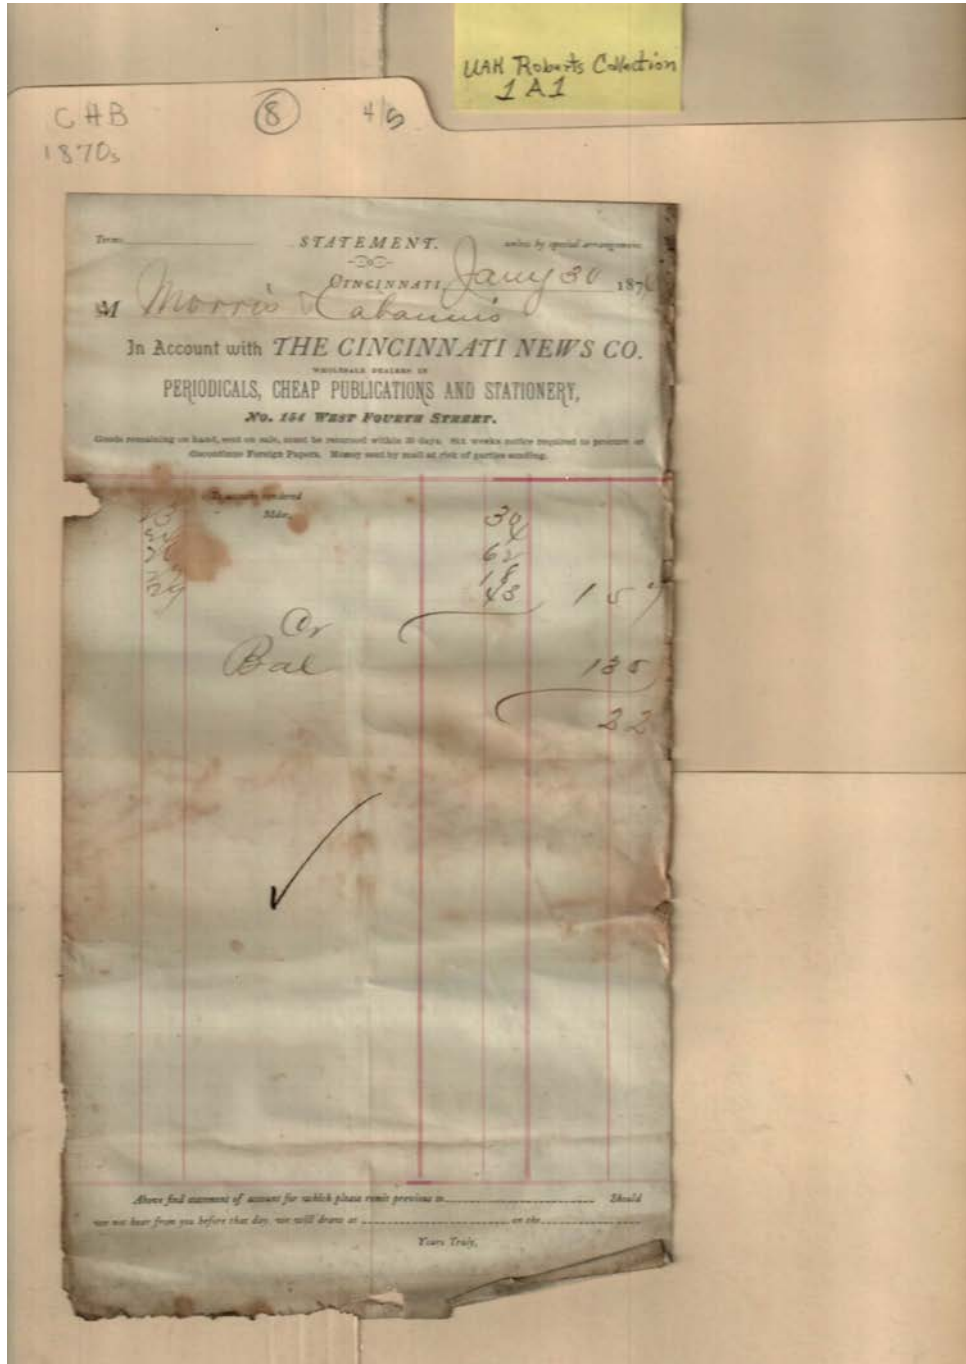 UAH Roberts Collection
1 A 1
CHB 8 4/5
1870s
Terms STATEMENT. unless by special arrangement.
CINCINNATI, Jany 30 187
M Morris & Cabaniss
In Account with THE CINCINNATI NEWS CO.
WHOLESALE DEALERS IN
PERIODICALS, CHEAP PUBLICATIONS AND STATIONERY,
No. 154 WEST FOURTH STREET.
Goods remaining on hand, sent on sale, must be returned within 30 days. Six weeks notice required to procure or
discontinue Foreign Papers. Money sent by mail at risk of parties sending.
To account rendered
Mdse. 30
4
62
18
29 43 157
Cr
Bal 135
22
Above find statement of account for which please remit previous to Should
we not hear from you before that day, we will draw at on the
Yours Truly,